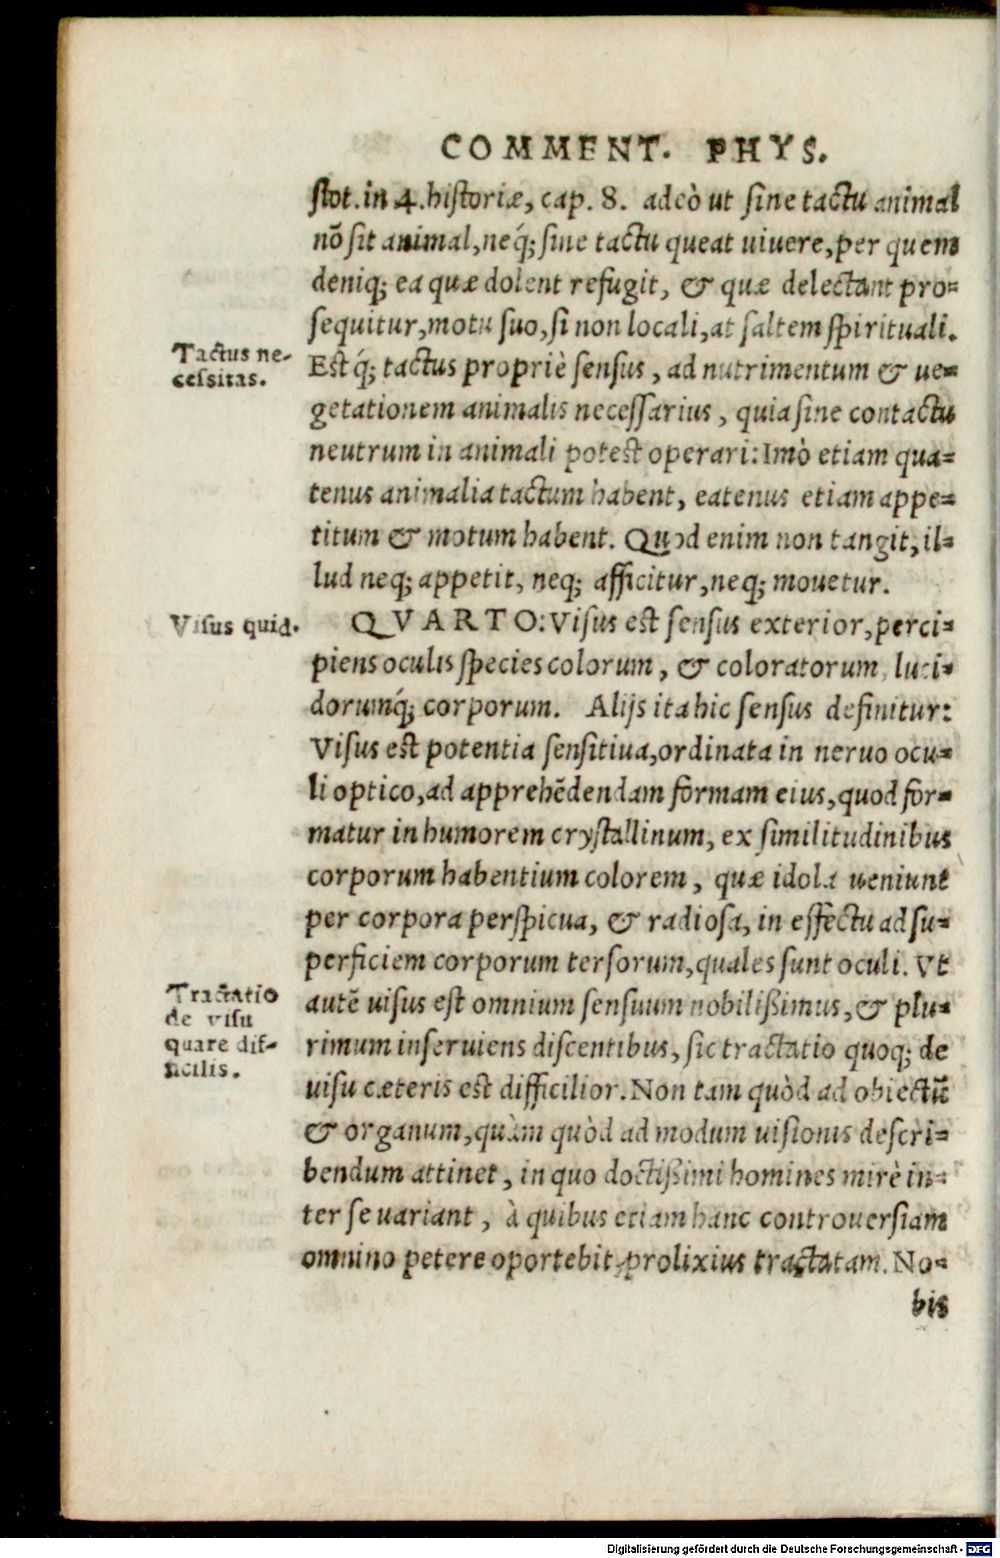 COMMENT. PHYS.
stot. in 4. historiæ, cap. 8. adeò ut sine tactu animal
nõ sit animal, neq́; sine tactu queat uiuere, per quem
deniq; ea quæ dolent refugit, & quæ delectant pro-
sequitur, motu suo, si non locali, at saltem spirituali.
Tactus ne-
cessitas.
Est q́; tactus propriè sensus, ad nutrimentum & ue-
getationem animalis necessarius, quia sine contactu
neutrum in animali potest operari: Imò etiam qua-
tenus animalia tactum habent, eatenus etiam appe-
titum & motum habent. Quod enim non tangit, il-
lud neq; appetit, neq; afficitur, neq; mouetur.
Visus quid.
QVARTO: Visus est sensus exterior, perci-
piens oculis species colorum, & coloratorum, luci-
dorumq́; corporum. Alijs ita hic sensus definitur:
Visus est potentia sensitiua, ordinata in neruo ocu-
li optico, ad apprehẽdendam formam eius, quod for-
matur in humorem crystallinum, ex similitudinibus
corporum habentium colorem, quæ idola ueniunt
per corpora perspicua, & radiosa, in effectu ad su-
perficiem corporum tersorum, quales sunt oculi. Vt
Tractatio
de visu
quare dif-
ficilis.
autẽ uisus est omnium sensuum nobilißimus, & plu-
rimum inseruiens discentibus, sic tractatio quoq; de
uisu cæteris est difficilior. Non tam quòd ad obiectũ
& organum, quàm quòd ad modum uisionis descri-
bendum attinet, in quo doctißimi homines mirè in-
ter se uariant, à quibus etiam hanc controuersiam
omnino petere oportebit, prolixius tractatam. No-
bis
Digitalisierung gefördert durch die Deutsche Forschungsgemeinschaft - DFG